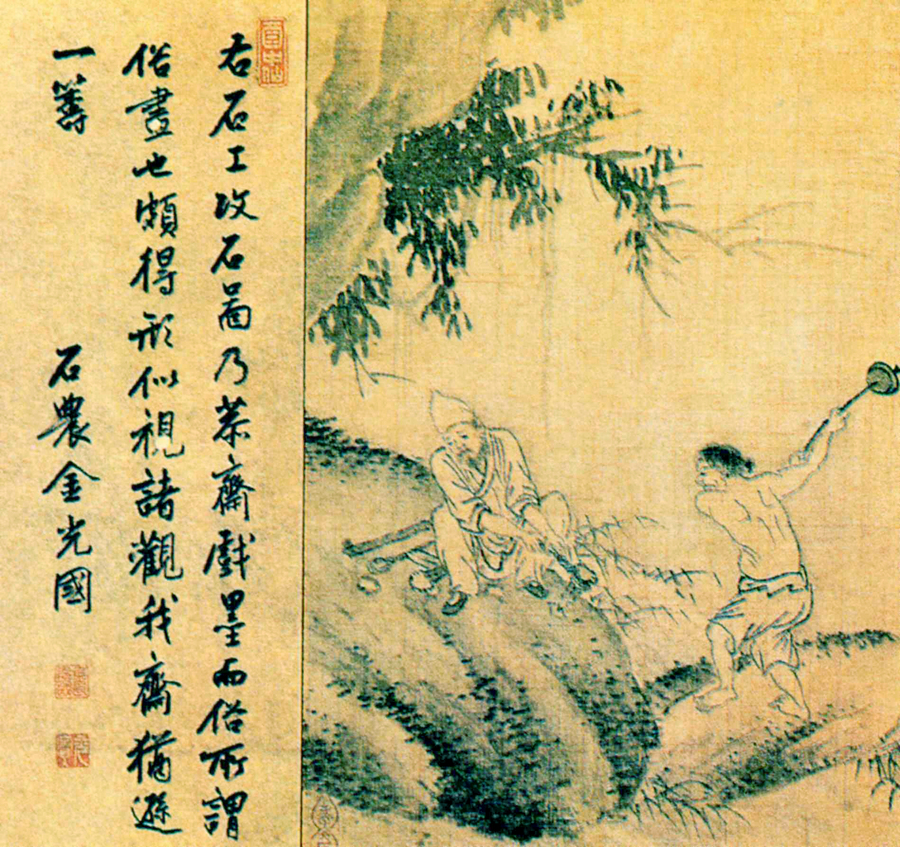 右石工攻石圖乃茶齋戲墨而俗所謂
俗畫也頗得形似視諸觀我齋猶遜
一籌
石農金光國